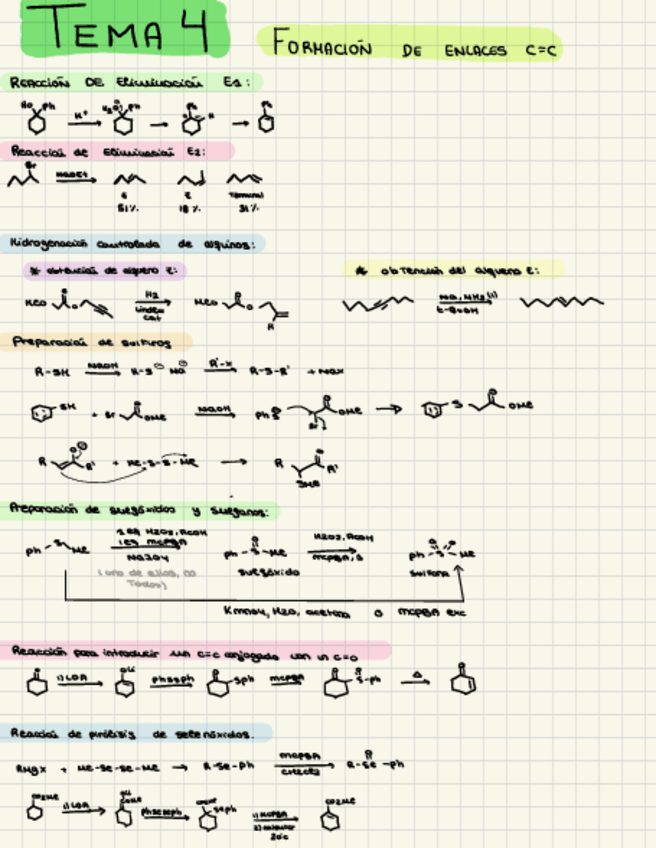 TEMA 4
FORMACIÓN DE ENLACES C=C
REACCIÓN DE Eliminación E1:
HO Ph
H+
Ph
H
Ph
Reacción de Eliminación E2:
Br
NaOEt
E
51%
Z
18%
Terminal
31%
Hidrogenación controlada de alquinos:
* obtención de alqueno Z:
* obtención del alqueno E:
MeO
H2
Lindlar
cat
MeO
H
Na, NH3 (l)
t-BuOH
Preparación de sulfuros
R-SH NaOH R-S⊖ Na⊕ R'-X R-S-R' + NaX
SH + Br OMe NaOH PhS OMe Br S OMe
R R' + Me-S-S-Me R R' SMe
Preparación de sulfóxidos y sulfonas:
Ph S Me
1 eq H2O2, AcOH
1 eq mCPBA
NaIO4
(uno de ellos, no
Todos)
Ph-S-Me
sulfóxido
H2O2, AcOH
mCPBA,
Ph-S-Me
Sulfona
KMnO4, H2O, acetona o mCPBA exc
Reacción para introducir un C=C conjugado con un C=O
1) LDA OLi PhSSPh SPh mCPBA S-Ph Δ
Reacción de pirólisis de selenóxidos.
RMgX + Me-Se-Se-Me → R-Se-Ph mCPBA R-Se-Ph
CO2Me 1) LDA OLi OMe PhSeSePh SePh 1) MCPBA CO2Me
2) calentar
20°C